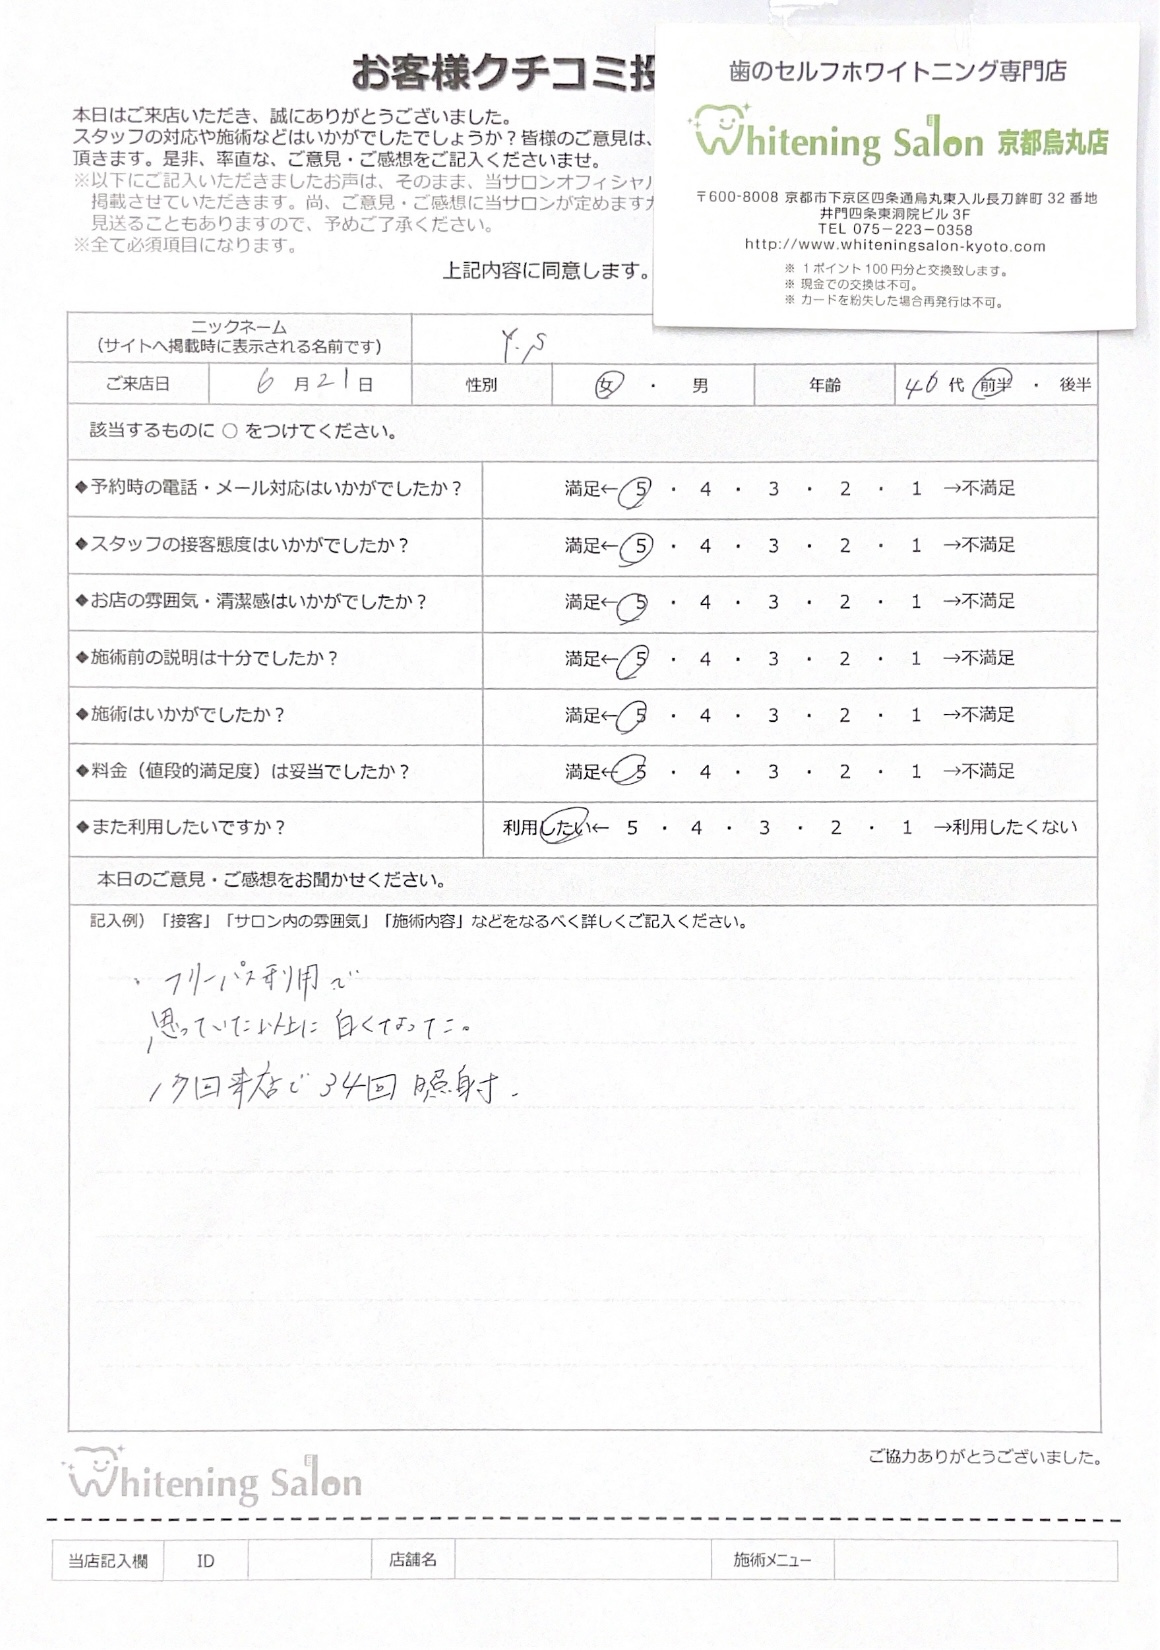 お客様クチコミ投
本日はご来店いただき、誠にありがとうございました。
スタッフの対応や施術などはいかがでしたでしょうか？皆様のご意見は、
頂きます。是非、率直な、ご意見・ご感想をご記入くださいませ。
※以下にご記入いただきましたお声は、そのまま、当サロンオフィシャル
掲載させていただきます。尚、ご意見・ご感想に当サロンが定めますガ
見送ることもありますので、予めご了承ください。
※全て必須項目になります。
上記内容に同意します。
歯のセルフホワイトニング専門店
Whitening Salon 京都烏丸店
〒600-8008 京都市下京区四条通烏丸東入ル長刀鉾町 32 番地
井門四条東洞院ビル 3F
TEL 075-223-0358
http://www.whiteningsalon-kyoto.com
※ 1ポイント100円分と交換致します。
※ 現金での交換は不可。
※ カードを紛失した場合再発行は不可。
ニックネーム
（サイトへ掲載時に表示される名前です） Y.S
ご来店日 6 月 21 日 性別 女 ・ 男 年齢 40 代 前半 ・ 後半
該当するものに ○ をつけてください。
◆予約時の電話・メール対応はいかがでしたか？ 満足← 5 ・ 4 ・ 3 ・ 2 ・ 1 →不満足
◆スタッフの接客態度はいかがでしたか？ 満足← 5 ・ 4 ・ 3 ・ 2 ・ 1 →不満足
◆お店の雰囲気・清潔感はいかがでしたか？ 満足← 5 ・ 4 ・ 3 ・ 2 ・ 1 →不満足
◆施術前の説明は十分でしたか？ 満足← 5 ・ 4 ・ 3 ・ 2 ・ 1 →不満足
◆施術はいかがでしたか？ 満足← 5 ・ 4 ・ 3 ・ 2 ・ 1 →不満足
◆料金（値段的満足度）は妥当でしたか？ 満足← 5 ・ 4 ・ 3 ・ 2 ・ 1 →不満足
◆また利用したいですか？ 利用したい← 5 ・ 4 ・ 3 ・ 2 ・ 1 →利用したくない
本日のご意見・ご感想をお聞かせください。
記入例）「接客」「サロン内の雰囲気」「施術内容」などをなるべく詳しくご記入ください。
・フリーパス利用で
思っていた以上に白くなってた。
回来店で34回照射.
Whitening Salon
ご協力ありがとうございました。
当店記入欄 ID 店舗名 施術メニュー